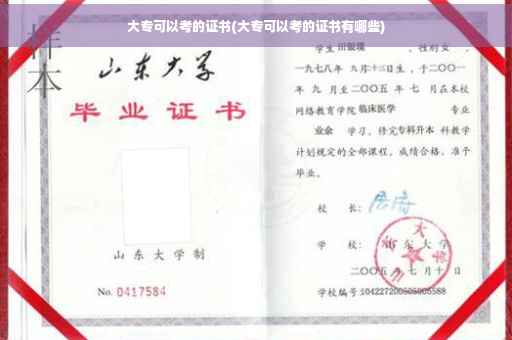 大专可以考的证书(大专可以考的证书有哪些)
样本
山东大学
毕业证书
山东大学制
No. 0417584
学生 田银環 ,性别女 ,
一九七八年 九月十三日生,于二〇〇一
年 九 月至二〇〇五 年 七 月在本校
网络教育学院临床医学 专业
业余 学习,修完专科升本 科教学
计划规定的全部课程,成绩合格,准予
毕业。
校 长:
学 校: 山东大学
二〇〇五 年 七 月 十 日
学校编号:104227200505005588